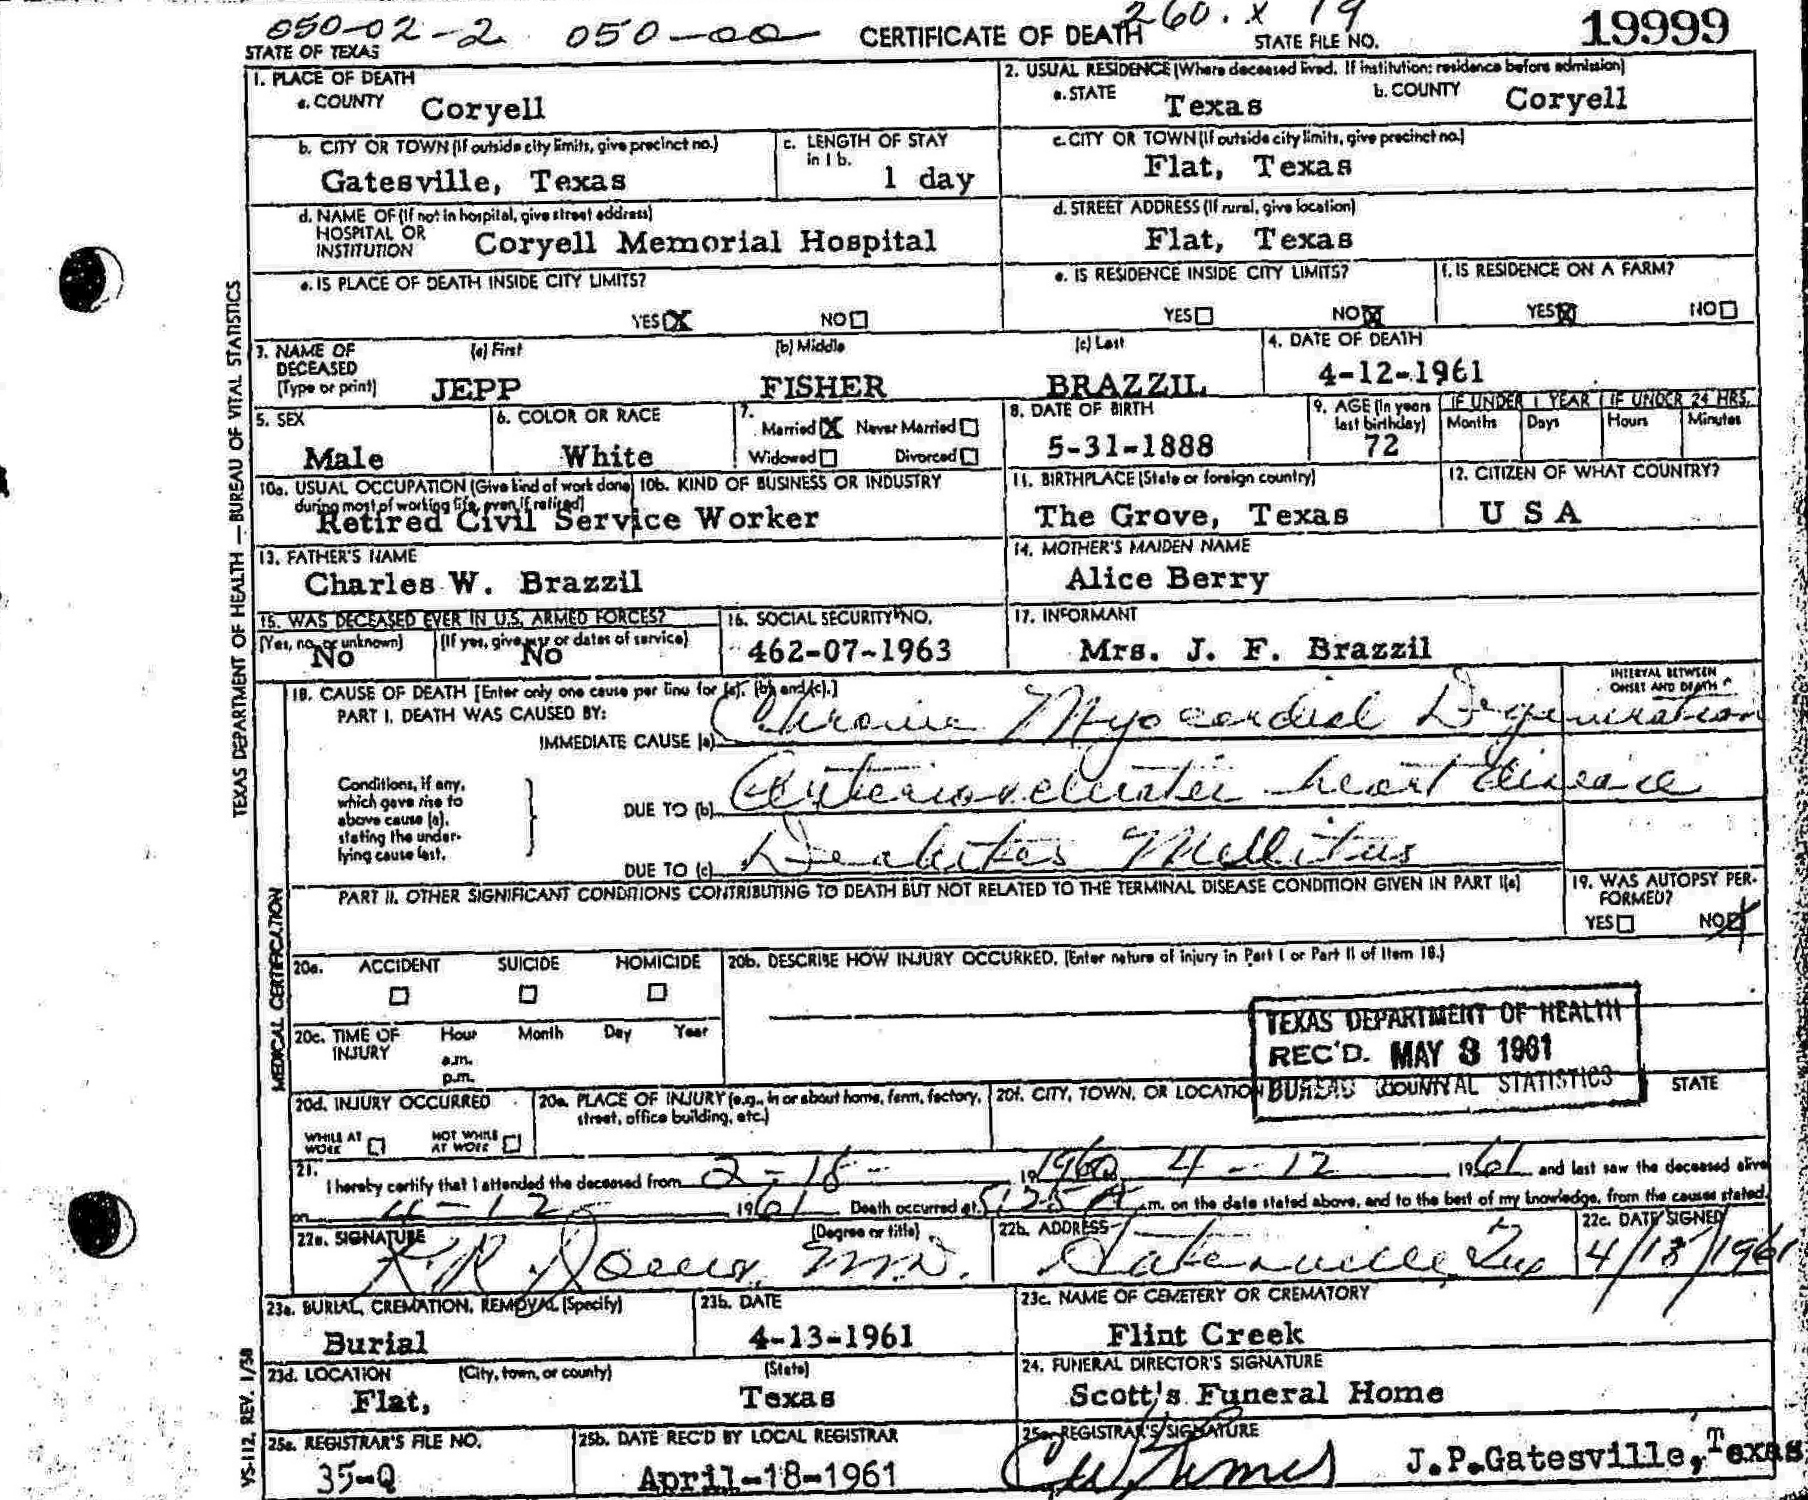 050-02-2 050-00 CERTIFICATE OF DEATH 260.x 19 19999
STATE OF TEXAS STATE FILE NO.
1. PLACE OF DEATH
a. COUNTY Coryell
2. USUAL RESIDENCE (Where deceased lived. If institution: residence before admission)
a. STATE Texas b. COUNTY Coryell
b. CITY OR TOWN (If outside city limits, give precinct no.) Gatesville, Texas
c. LENGTH OF STAY in 1 b. 1 day
c. CITY OR TOWN (If outside city limits, give precinct no.) Flat, Texas
d. NAME OF (If not in hospital, give street address)
HOSPITAL OR
INSTITUTION Coryell Memorial Hospital
d. STREET ADDRESS (If rural, give location)
Flat, Texas
e. IS PLACE OF DEATH INSIDE CITY LIMITS?
YES X NO
e. IS RESIDENCE INSIDE CITY LIMITS?
YES NO X
f. IS RESIDENCE ON A FARM?
YES X NO
3. NAME OF DECEASED (Type or print)
(a) First (b) Middle (c) Last
JEPP FISHER BRAZZIL
4. DATE OF DEATH
4-12-1961
5. SEX
Male
6. COLOR OR RACE
White
7.
Married X Never Married
Widowed Divorced
8. DATE OF BIRTH
5-31-1888
9. AGE (In years last birthday)
72
IF UNDER 1 YEAR IF UNDER 24 HRS.
Months Days Hours Minutes
10a. USUAL OCCUPATION (Give kind of work done during most of working life, even if retired)
10b. KIND OF BUSINESS OR INDUSTRY
Retired Civil Service Worker
11. BIRTHPLACE (State or foreign country)
The Grove, Texas
12. CITIZEN OF WHAT COUNTRY?
U S A
13. FATHER'S NAME
Charles W. Brazzil
14. MOTHER'S MAIDEN NAME
Alice Berry
15. WAS DECEASED EVER IN U.S. ARMED FORCES?
(Yes, no, or unknown) (If yes, give war or dates of service)
No No
16. SOCIAL SECURITY NO.
462-07-1963
17. INFORMANT
Mrs. J. F. Brazzil
18. CAUSE OF DEATH [Enter only one cause per line for (a), (b) and (c).]
INTERVAL BETWEEN
ONSET AND DEATH
PART I. DEATH WAS CAUSED BY:
IMMEDIATE CAUSE (a) Chronic Myocardial Degeneration
Conditions, if any,
which gave rise to
above cause (a),
stating the under-
lying cause last.
DUE TO (b) Arteriosclerotic heart disease
DUE TO (c) Diabetes Mellitus
PART II. OTHER SIGNIFICANT CONDITIONS CONTRIBUTING TO DEATH BUT NOT RELATED TO THE TERMINAL DISEASE CONDITION GIVEN IN PART I(a)
19. WAS AUTOPSY PER-
FORMED?
YES NO X
20a. ACCIDENT SUICIDE HOMICIDE
20b. DESCRIBE HOW INJURY OCCURRED. (Enter nature of injury in Part I or Part II of Item 18.)
20c. TIME OF INJURY Hour Month Day Year
a.m.
p.m.
TEXAS DEPARTMENT OF HEALTH
REC'D. MAY 8 1961
BUREAU OF VITAL STATISTICS
20d. INJURY OCCURRED
WHILE AT WORK NOT WHILE AT WORK
20e. PLACE OF INJURY (e.g., in or about home, farm, factory, street, office building, etc.)
20f. CITY, TOWN, OR LOCATION COUNTY STATE
21.
I hereby certify that I attended the deceased from 2-18- 19 1960 4-12 1961 and last saw the deceased alive
on 4-12- 1961 Death occurred at 5:25 A .m. on the date stated above, and to the best of my knowledge, from the causes stated.
22a. SIGNATURE (Degree or title)
M.D.
22b. ADDRESS
Gatesville, Tex
22c. DATE SIGNED
4/13/1961
23a. BURIAL, CREMATION, REMOVAL (Specify)
Burial
23b. DATE
4-13-1961
23c. NAME OF CEMETERY OR CREMATORY
Flint Creek
23d. LOCATION (City, town, or county) (State)
Flat, Texas
24. FUNERAL DIRECTOR'S SIGNATURE
Scott's Funeral Home
25a. REGISTRAR'S FILE NO.
35-Q
25b. DATE REC'D BY LOCAL REGISTRAR
April-18-1961
25c. REGISTRAR'S SIGNATURE
J.P.Gatesville, Texas
TEXAS DEPARTMENT OF HEALTH — BUREAU OF VITAL STATISTICS
MEDICAL CERTIFICATION
VS-112, REV. 1/58